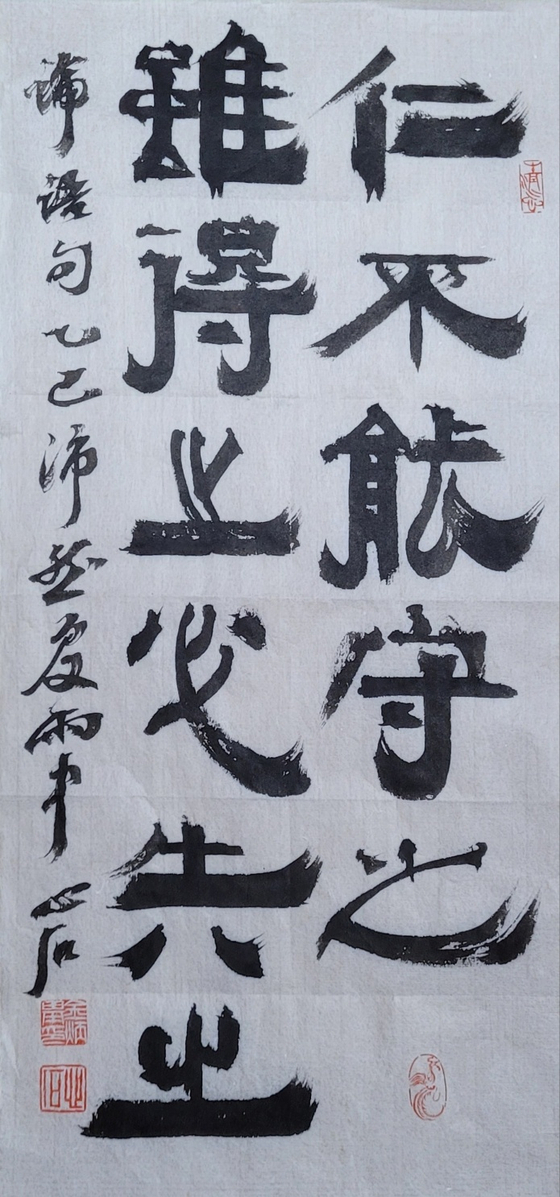 仁不能守之
雖得之必失之
論語句乙巳沛然夏雨中心石